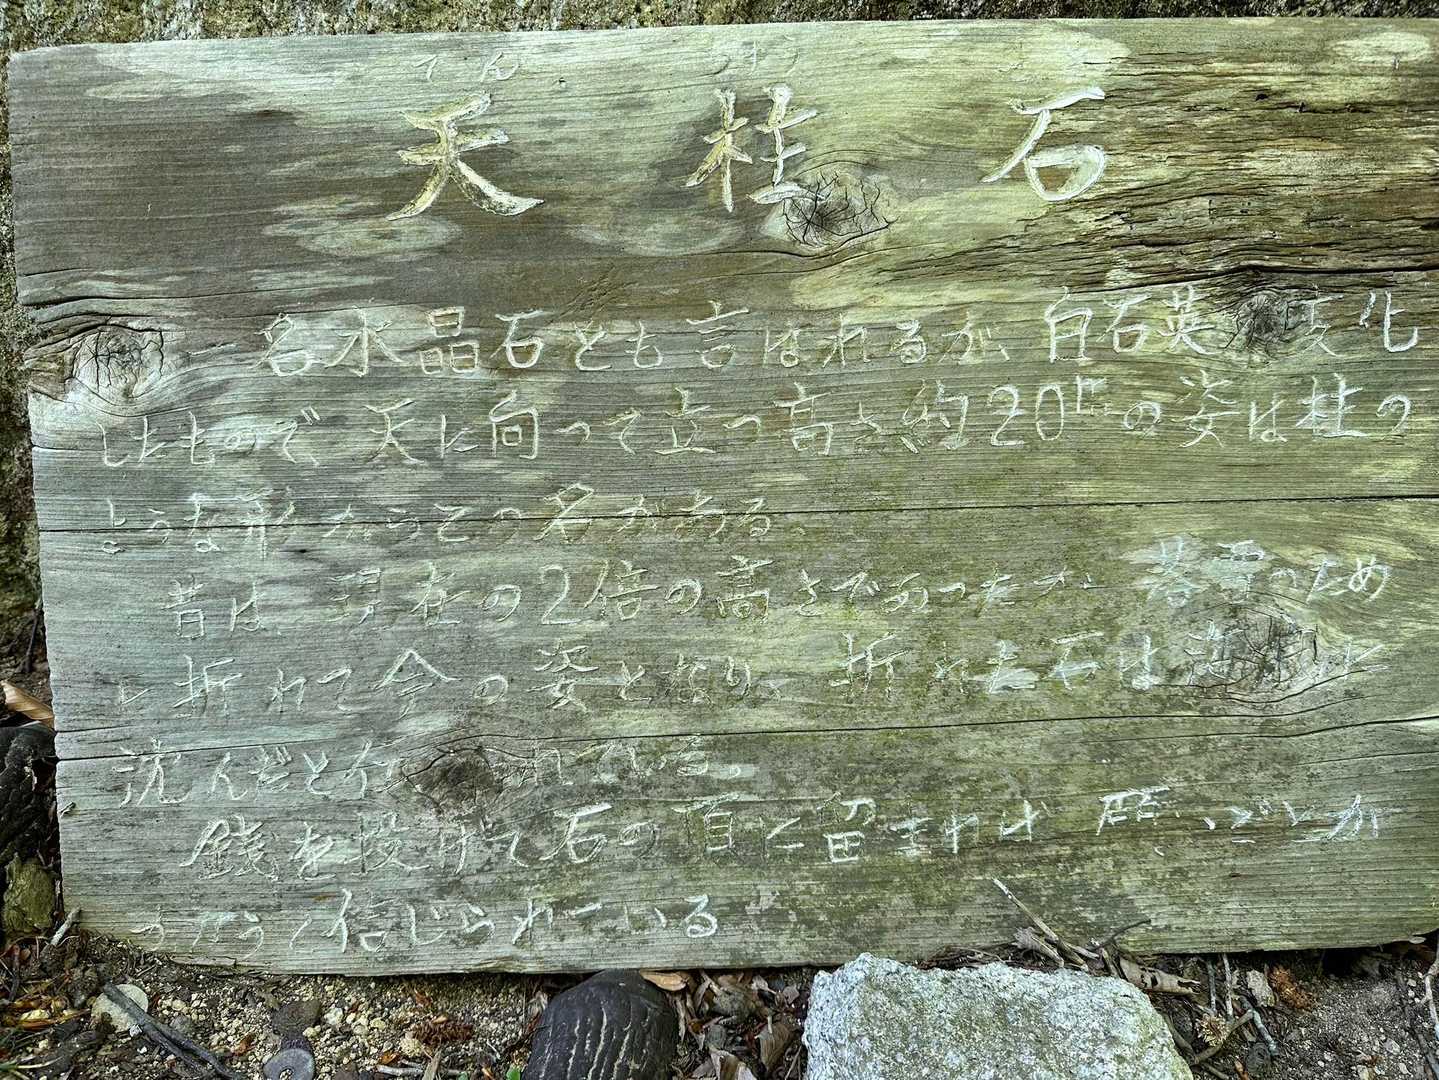 てん ちゅう
天柱石
一名水晶石とも言はれるが、白石英 変化
したもので、天に向って立つ高さ約20mの姿は柱の
ような形からこの名がある。
昔は、現在の2倍の高さであったが 落雷のため
に折れて今の姿となり、折れた石は
沈んだと れている。
銭を投げて石の頂に留まれば 願いごとが
かなうと信じられている